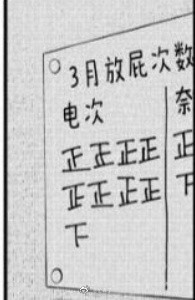 3月放屁次数
电次 奈
正正正正 正
正正正正 下
下